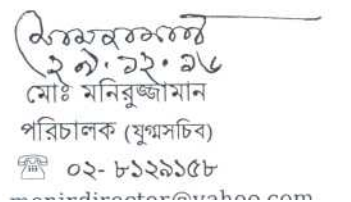 ২৭.১২.১৮
মোঃ মনিরুজ্জামান
পরিচালক (যুগ্মসচিব)
☎ ০২- ৮১২৯১৫৮
monirdirector@yahoo.com